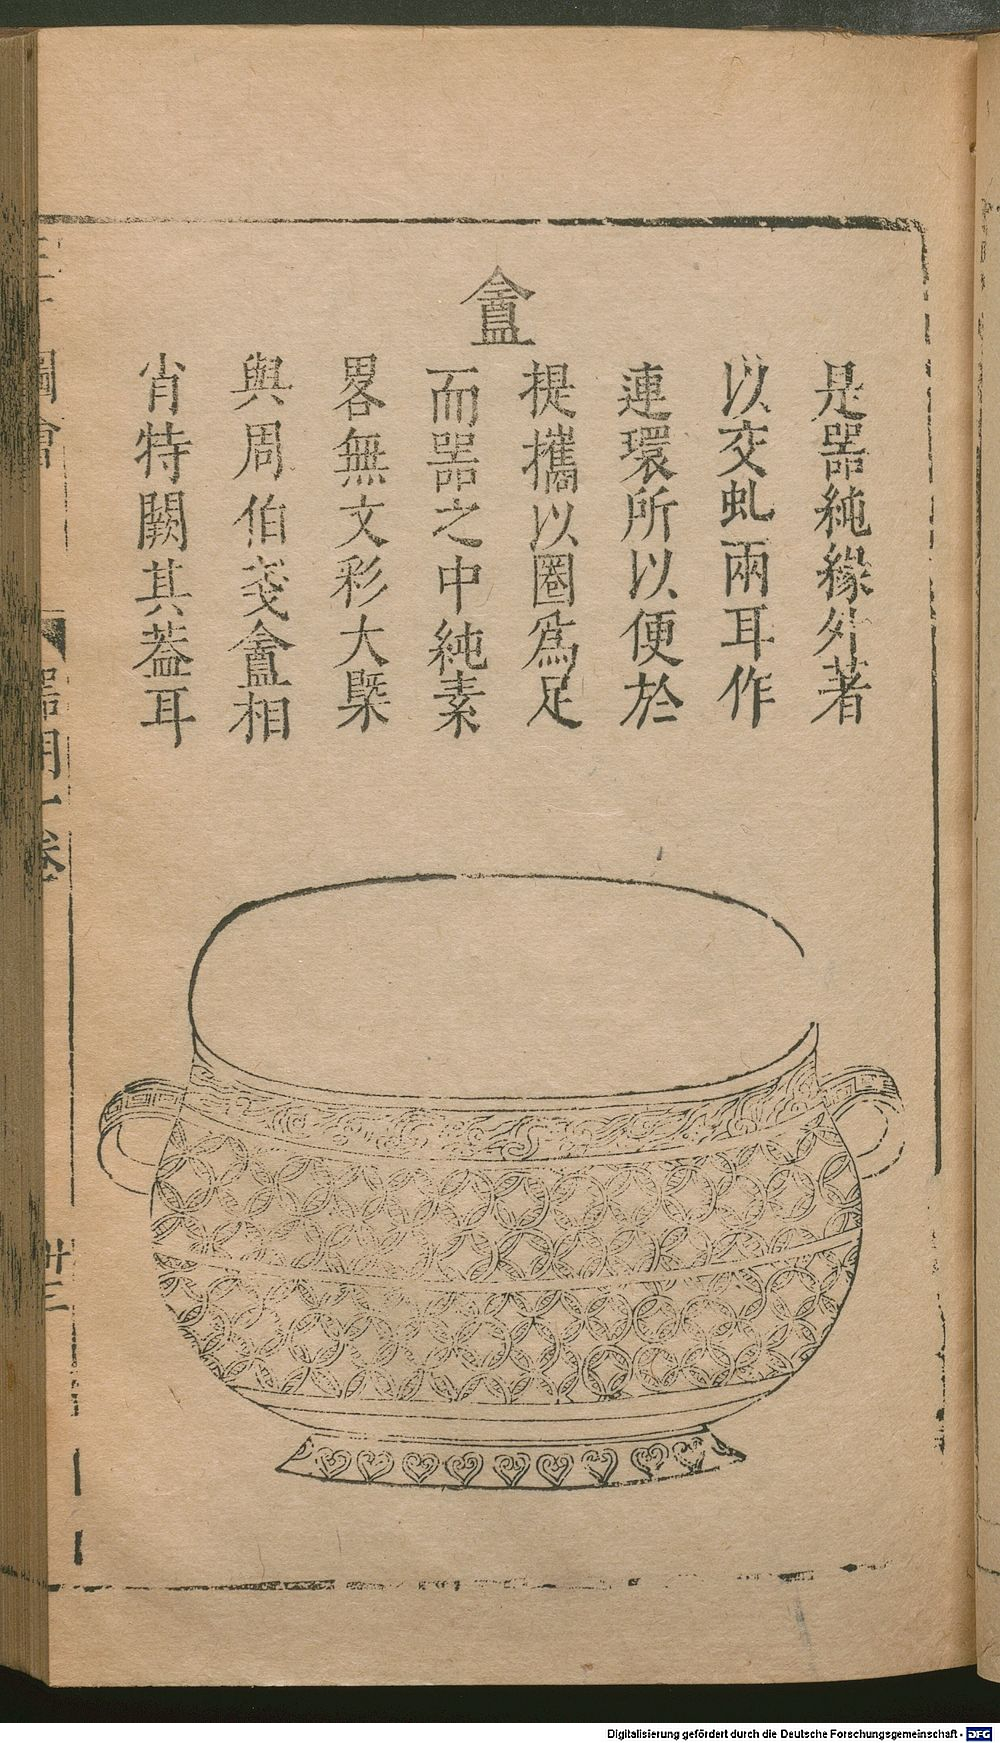 盦
是器純緣外著
以交虬兩耳作
連環所以便於
提攜以圈爲足
而器之中純素
畧無文彩大槩
與周伯戔盦相
肖特闕其葢耳
三才圖會
器用一卷
卅三
Digitalisierung gefördert durch die Deutsche Forschungsgemeinschaft - DFG